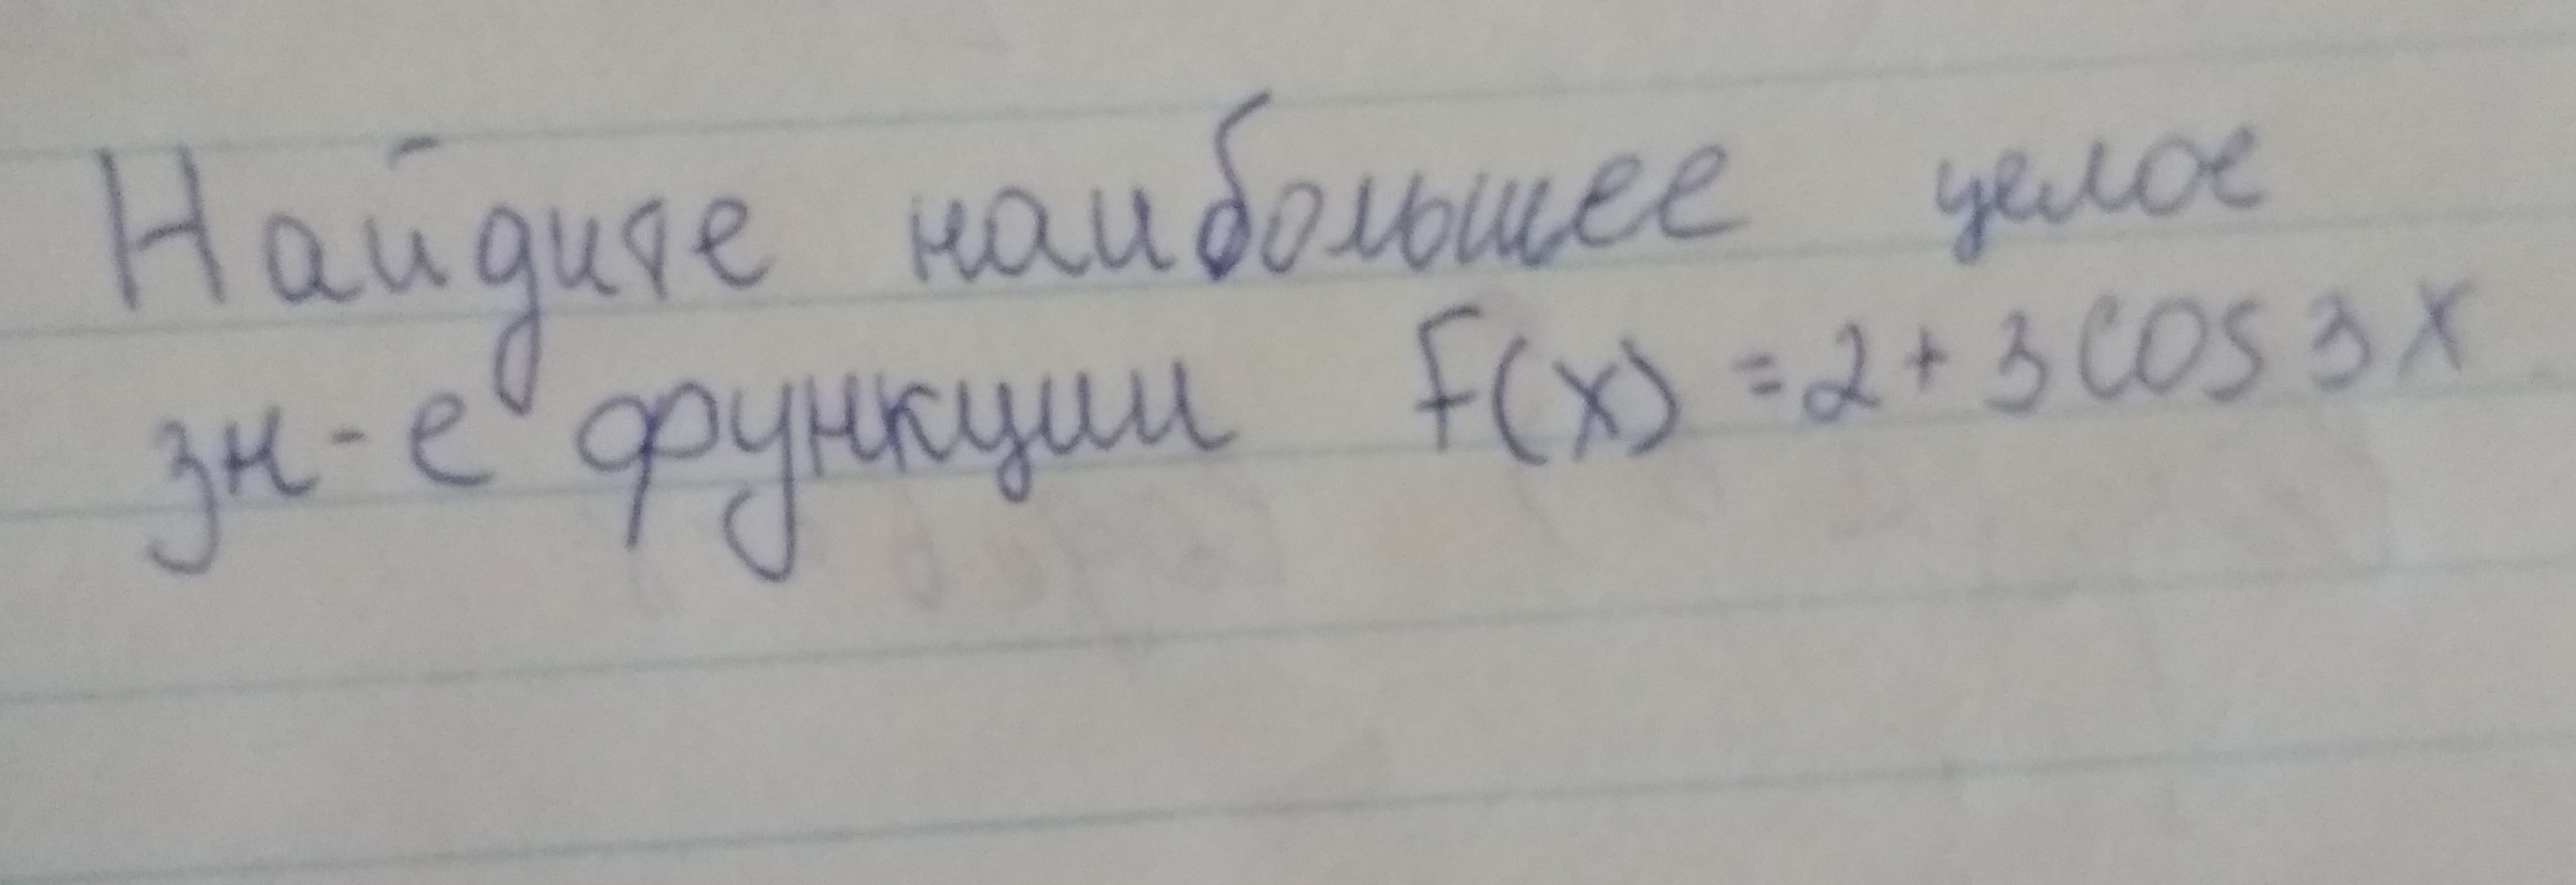 Найдите наибольшее целое
зн-е функции F(x) = 2 + 3 cos 3x